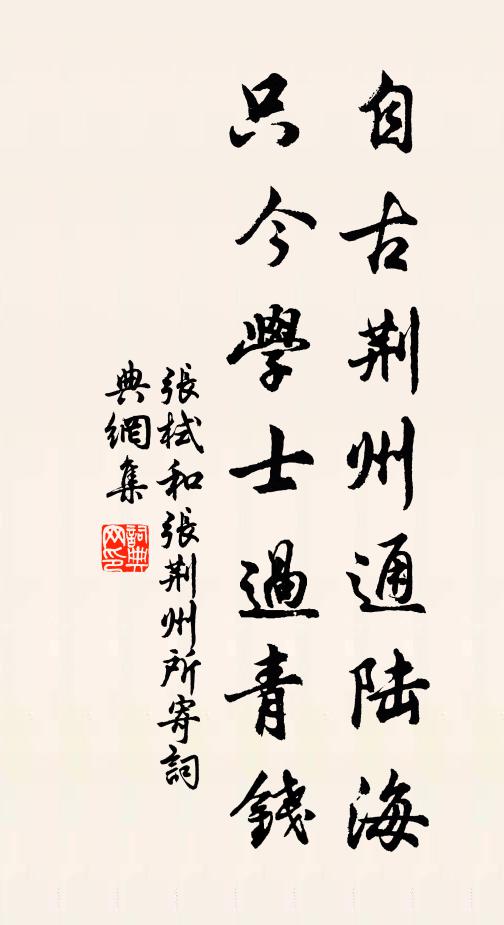 自古荆州通陆海
只今學士過青錢
張栻和張荆州所寄詞
典網集
詞典網印